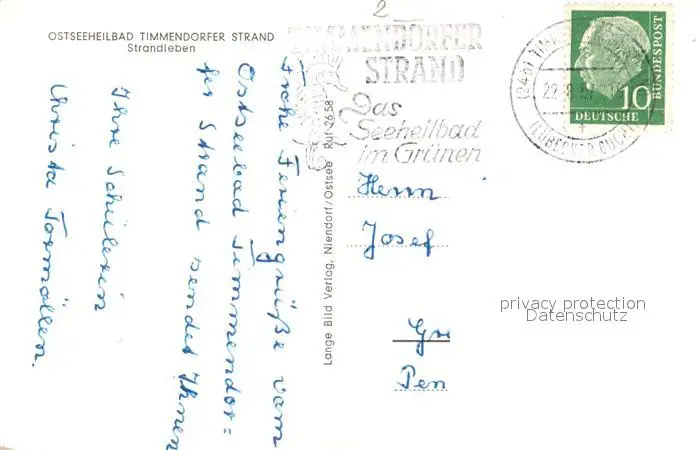 OSTSEEHEILBAD TIMMENDORFER STRAND
Strandleben
Frohe Feriengrüße vom
Ostseebad Timmendor-
fer Strand sendet Ihnen
Ihre Schülerin
Christa Tormöllen.
Lange Bild Verlag, Niendorf/Ostsee Ruf 2658
2
TIMMENDORFER
STRAND
Das
Seeheilbad
im Grünen
(24b) TIMM
22.8.57
(LÜBECKER BUCHT)
10
DEUTSCHE
BUNDESPOST
Herrn
Josef
Gre
Pen
privacy protection
Datenschutz